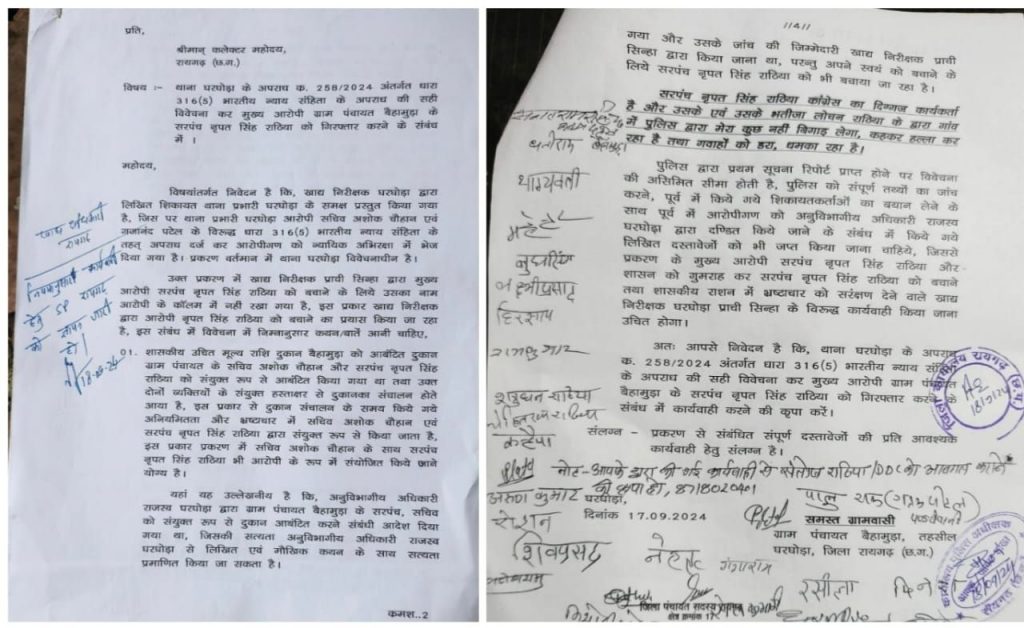 प्रति,
श्रीमान् कलेक्टर महोदय,
रायगढ़ (छ.ग.)
विषय :- थाना घरघोड़ा के अपराध क. 258/2024 अंतर्गत धारा
316(5) भारतीय न्याय संहिता के अपराध की सही
विवेचना कर मुख्य आरोपी ग्राम पंचायत बैहामुड़ा के
सरपंच नृपत सिंह राठिया को गिरफ्तार करने के संबंध
में ।
महोदय,
विषयांतर्गत निवेदन है कि, खाद्य निरीक्षक घरघोड़ा द्वारा
लिखित शिकायत थाना प्रभारी घरघोड़ा के समक्ष प्रस्तुत किया गया
है, जिस पर थाना प्रभारी घरघोड़ा आरोपी सचिव अशोक चौहान एवं
गजानंद पटेल के विरूद्ध धारा 316(5) भारतीय न्याय संहिता के
तहत् अपराध दर्ज कर आरोपीगण को न्यायिक अभिरक्षा में भेज
दिया गया है। प्रकरण वर्तमान में थाना घरघोड़ा विवेचनाधीन है।
उक्त प्रकरण में खाद्य निरीक्षक प्राची सिन्हा द्वारा मुख्य
आरोपी सरपंच नृपत सिंह राठिया को बचाने के लिये उसका नाम
आरोपी के कॉलम में नहीं रखा गया है, इस प्रकार खाद्य निरीक्षक
द्वारा आरोपी नृपत सिंह राठिया को बचाने का प्रयास किया जा रहा
है, इस संबंध में विवेचना में निम्नानुसार कथन/बातें आनी चाहिए,
01. शासकीय उचित मूल्य राशि दुकान बैहामुड़ा को आबंटित दुकान
ग्राम पंचायत के सचिव अशोक चौहान और सरपंच नृपत सिंह
राठिया को संयुक्त रूप से आबंटित किया गया था तथा उक्त
दोनों व्यक्तियों के संयुक्त हस्ताक्षर से दुकानका संचालन होते
आया है, इस प्रकार से दुकान संचालन के समय किये गये
अनियमितता और भ्रष्टाचार में सचिव अशोक चौहान एवं
सरपंच नृपत सिंह राठिया द्वारा संयुक्त रूप से किया जाता है,
इस प्रकार प्रकरण में सचिव अशोक चौहान के साथ सरपंच
नृपत सिंह राठिया भी आरोपी के रूप में संयोजित किये जाने
योग्य है।
यहां यह उल्लेखनीय है कि, अनुविभागीय अधिकारी
राजस्व घरघोड़ा द्वारा ग्राम पंचायत बैहामुड़ा के सरपंच, सचिव
को संयुक्त रूप से दुकान आबंटित करने संबंधी आदेश दिया
गया था, जिसकी सत्यता अनुविभागीय अधिकारी राजस्व
घरघोड़ा से लिखित एवं मौखिक कथन के साथ सत्यता
प्रमाणित किया जा सकता है।
कमश..2
नियमानुसार कार्यवाही
हेतु SP रायगढ़
को
18-09-24
//4//
गया और उसके जांच की जिम्मेदारी खाद्य निरीक्षक प्राची
सिन्हा द्वारा किया जाना था, परन्तु अपने स्वयं को बचाने के
लिये सरपंच नृपत सिंह राठिया को भी बचाया जा रहा है।
सरपंच नृपत सिंह राठिया कांग्रेस का दिग्गज कार्यकर्ता
है और उसके एवं उसके भतीजा लोचन राठिया के द्वारा गांव
में पुलिस द्वारा मेरा कुछ नहीं बिगाड़ लेगा, कहकर हल्ला कर
रहा है तथा गवाहों को डरा, धमका रहा है।
पुलिस द्वारा प्रथम सूचना रिपोर्ट प्राप्त होने पर विवेचना
की असिमित सीमा होती है, पुलिस को संपूर्ण तथ्यों का जांच
करने, पूर्व में किये गये शिकायतकर्ताओं का बयान लेने के
साथ पूर्व में आरोपीगण को अनुविभागीय अधिकारी राजस्व
घरघोड़ा द्वारा दण्डित किये जाने के संबंध में किये गये
लिखित दस्तावेजों को भी जप्त किया जाना चाहिये, जिससे
प्रकरण के मुख्य आरोपी सरपंच नृपत सिंह राठिया और
शासन को गुमराह कर सरपंच नृपत सिंह राठिया को बचाने
तथा शासकीय राशन में भ्रष्टाचार को संरक्षण देने वाले खाद्य
निरीक्षक घरघोड़ा प्राची सिन्हा के विरूद्ध कार्यवाही किया जाना
उचित होगा।
अतः आपसे निवेदन है कि, थाना घरघोड़ा के अपराध
क. 258/2024 अंतर्गत धारा 316(5) भारतीय न्याय
के अपराध की सही विवेचना कर मुख्य आरोपी ग्राम
बैहामुड़ा के सरपंच नृपत सिंह राठिया को गिरफ्तार करने के
संबंध में कार्यवाही करने की कृपा करें।
संलग्न - प्रकरण से संबंधित संपूर्ण दस्तावेजों की प्रति आवश्यक
कार्यवाही हेतु संलग्न है।
नोट- आपके द्वारा की गई कार्यवाही से राठिया/DDC को अवगत
की कृपा हो,
घरघोड़ा,
दिनांक 17.09.2024
समस्त ग्रामवासी
ग्राम पंचायत बैहामुड़ा, तहसील
घरघोड़ा, जिला रायगढ़ (छ.ग.)
भाग्यवती
महेत्तर
हिरसाय
रामकुमार
कन्हैया
अरुण कुमार
रोशन
शिवप्रसाद
गंगाराम
रसीला
जिला पंचायत सदस्य
18/9/24